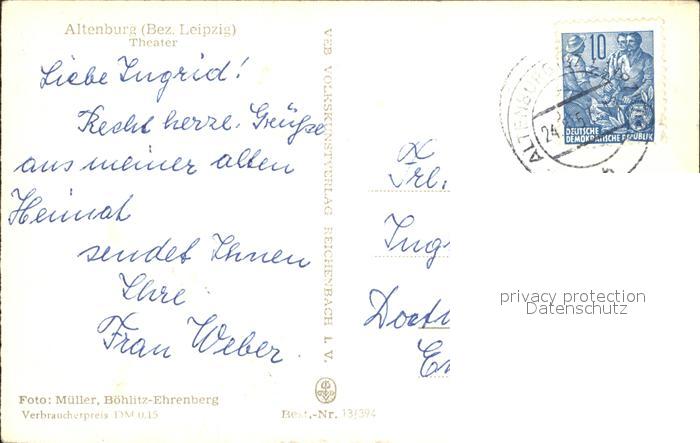 Altenburg (Bez. Leipzig)
Theater
Liebe Ingrid!
Recht herzl. Grüße
aus meiner alten
Heimat
sendet Ihnen
Ihre
Frau Weber.
Foto: Müller, Böhlitz-Ehrenberg
Verbraucherpreis DM 0.15
VEB VOLKSKUNSTVERLAG REICHENBACH I. V.
Best.-Nr. 13/394
10
DEUTSCHE
DEMOKRATISCHE REPUBLIK
ALTENBURG
Frl.
privacy protection
Datenschutz